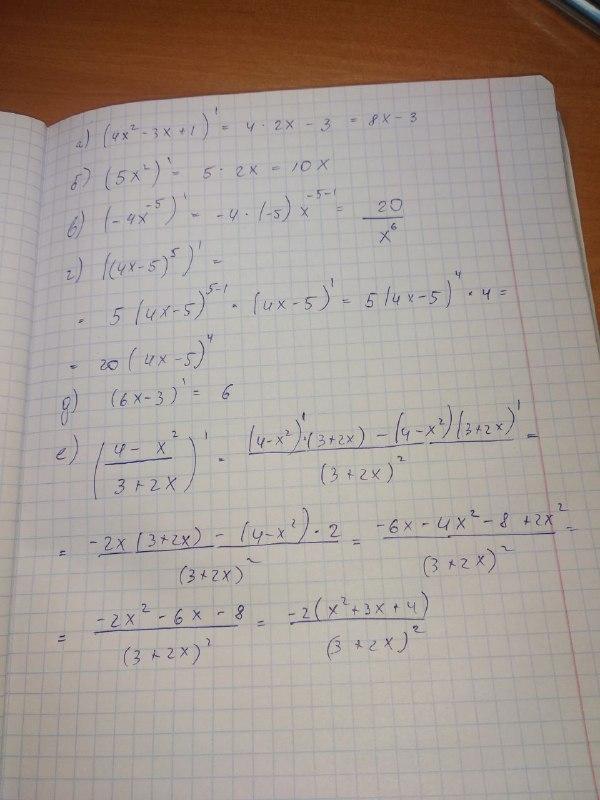 а) (4x² - 3x + 1)' = 4 · 2x - 3 = 8x - 3
б) (5x²)' = 5 · 2x = 10x
в) (-4x⁻⁵)' = -4 · (-5) x⁻⁵⁻¹ = 20/x⁶
г) ((4x-5)⁵)' =
= 5(4x-5)⁵⁻¹ · (4x-5)' = 5(4x-5)⁴ · 4 =
= 20(4x-5)⁴
д) (6x-3)' = 6
е) ((4-x²)/(3+2x))' = ((4-x²)'·(3+2x) - (4-x²)(3+2x)')/(3+2x)² =
= (-2x(3+2x) - (4-x²)·2)/(3+2x)² = (-6x - 4x² - 8 + 2x²)/(3+2x)² =
= (-2x² - 6x - 8)/(3+2x)² = (-2(x²+3x+4))/(3+2x)²